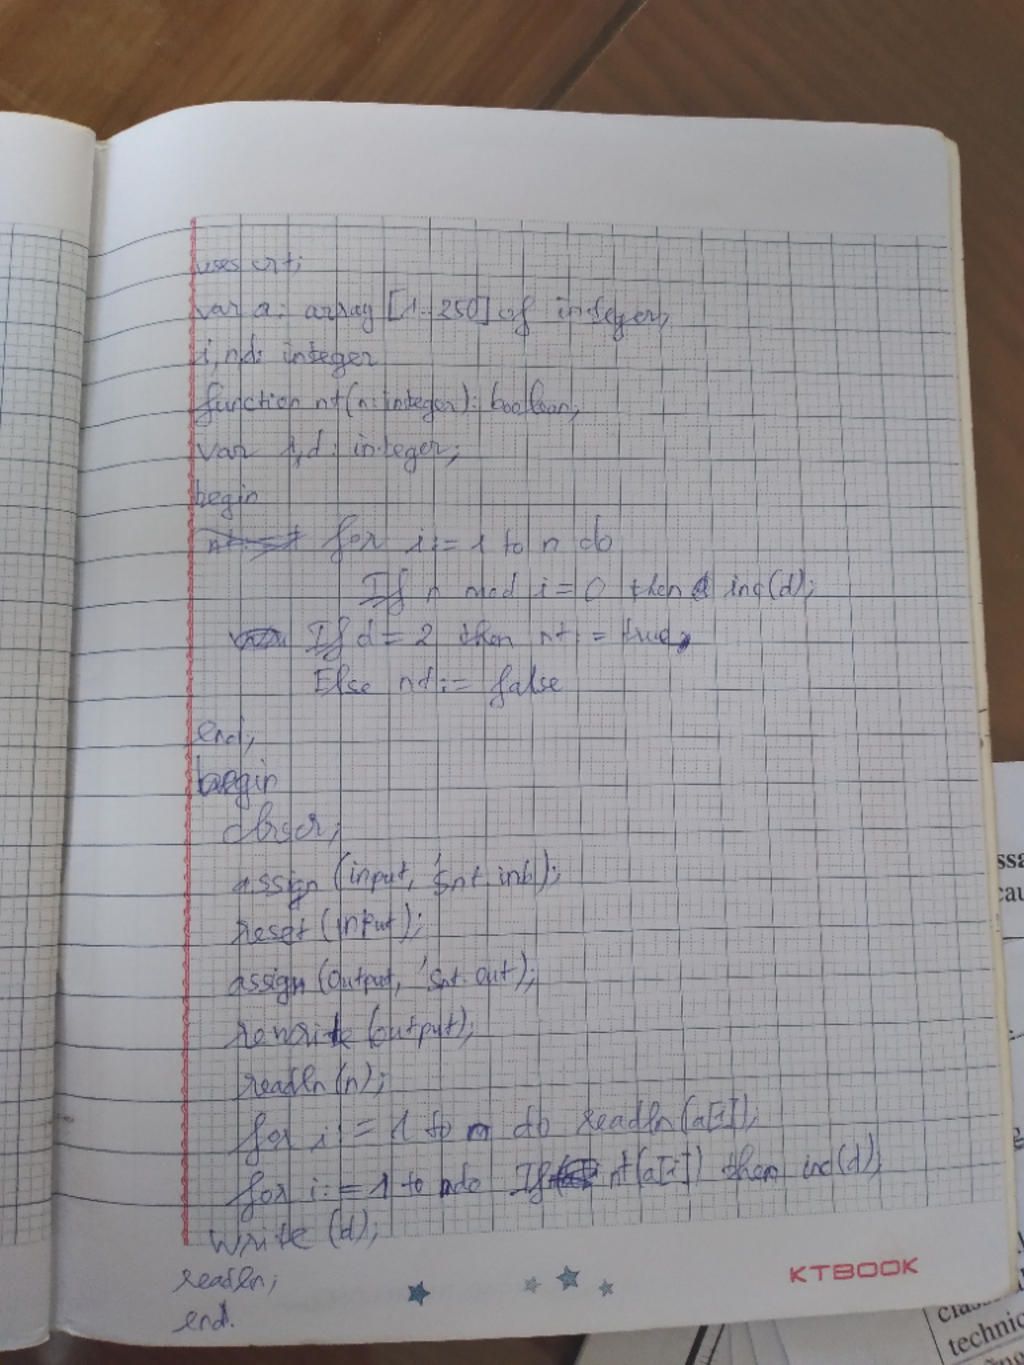 uses crt;
var a: array [1..250] of integer;
i,nd: integer
function nt(n:integer): boolean;
var i,d: integer;
begin
for i:=1 to n do
If n mod i=0 then inc(d);
If d=2 then nt:=true
Else nt:= false
end;
begin
clrscr;
assign (input, 'snt.inb);
reset (input);
assign (output, 'snt.out);
rewrite (output);
readln (n);
for i:=1 to n do readln(a[i]);
for i:=1 to n do If nt(a[i]) then inc(d);
write (d);
readln;
end.
KTBOOK
technic